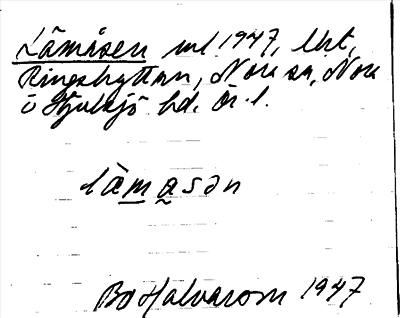 Låmåsen ml 1947, lht,
Ringshyttan, Nora sn, Nora
o Hjulsjö hd. Ör. l.
làmasən
Bo Halvarson 1947